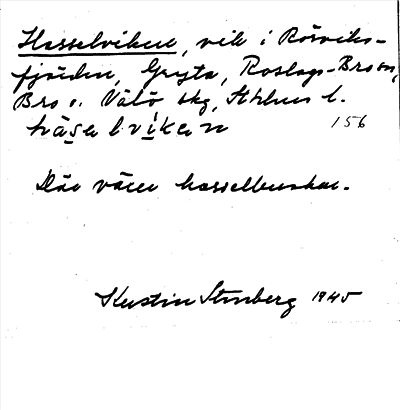 Hasselviken, vik i Rörviks-
fjärden, Gryta, Roslags-Bro sn,
Bro o. Vätö skg, Sthlms l.
hàsalvìkan 156
Där växer hasselbuskar.
Kerstin Stenberg 1945